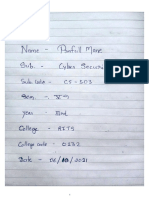 Name - Prafull Mane
Sub. - Cyber Security
Sub code - CS - 503
Sem. - Vth
year - IIIrd
College - RITS
College code - 0232
Date -